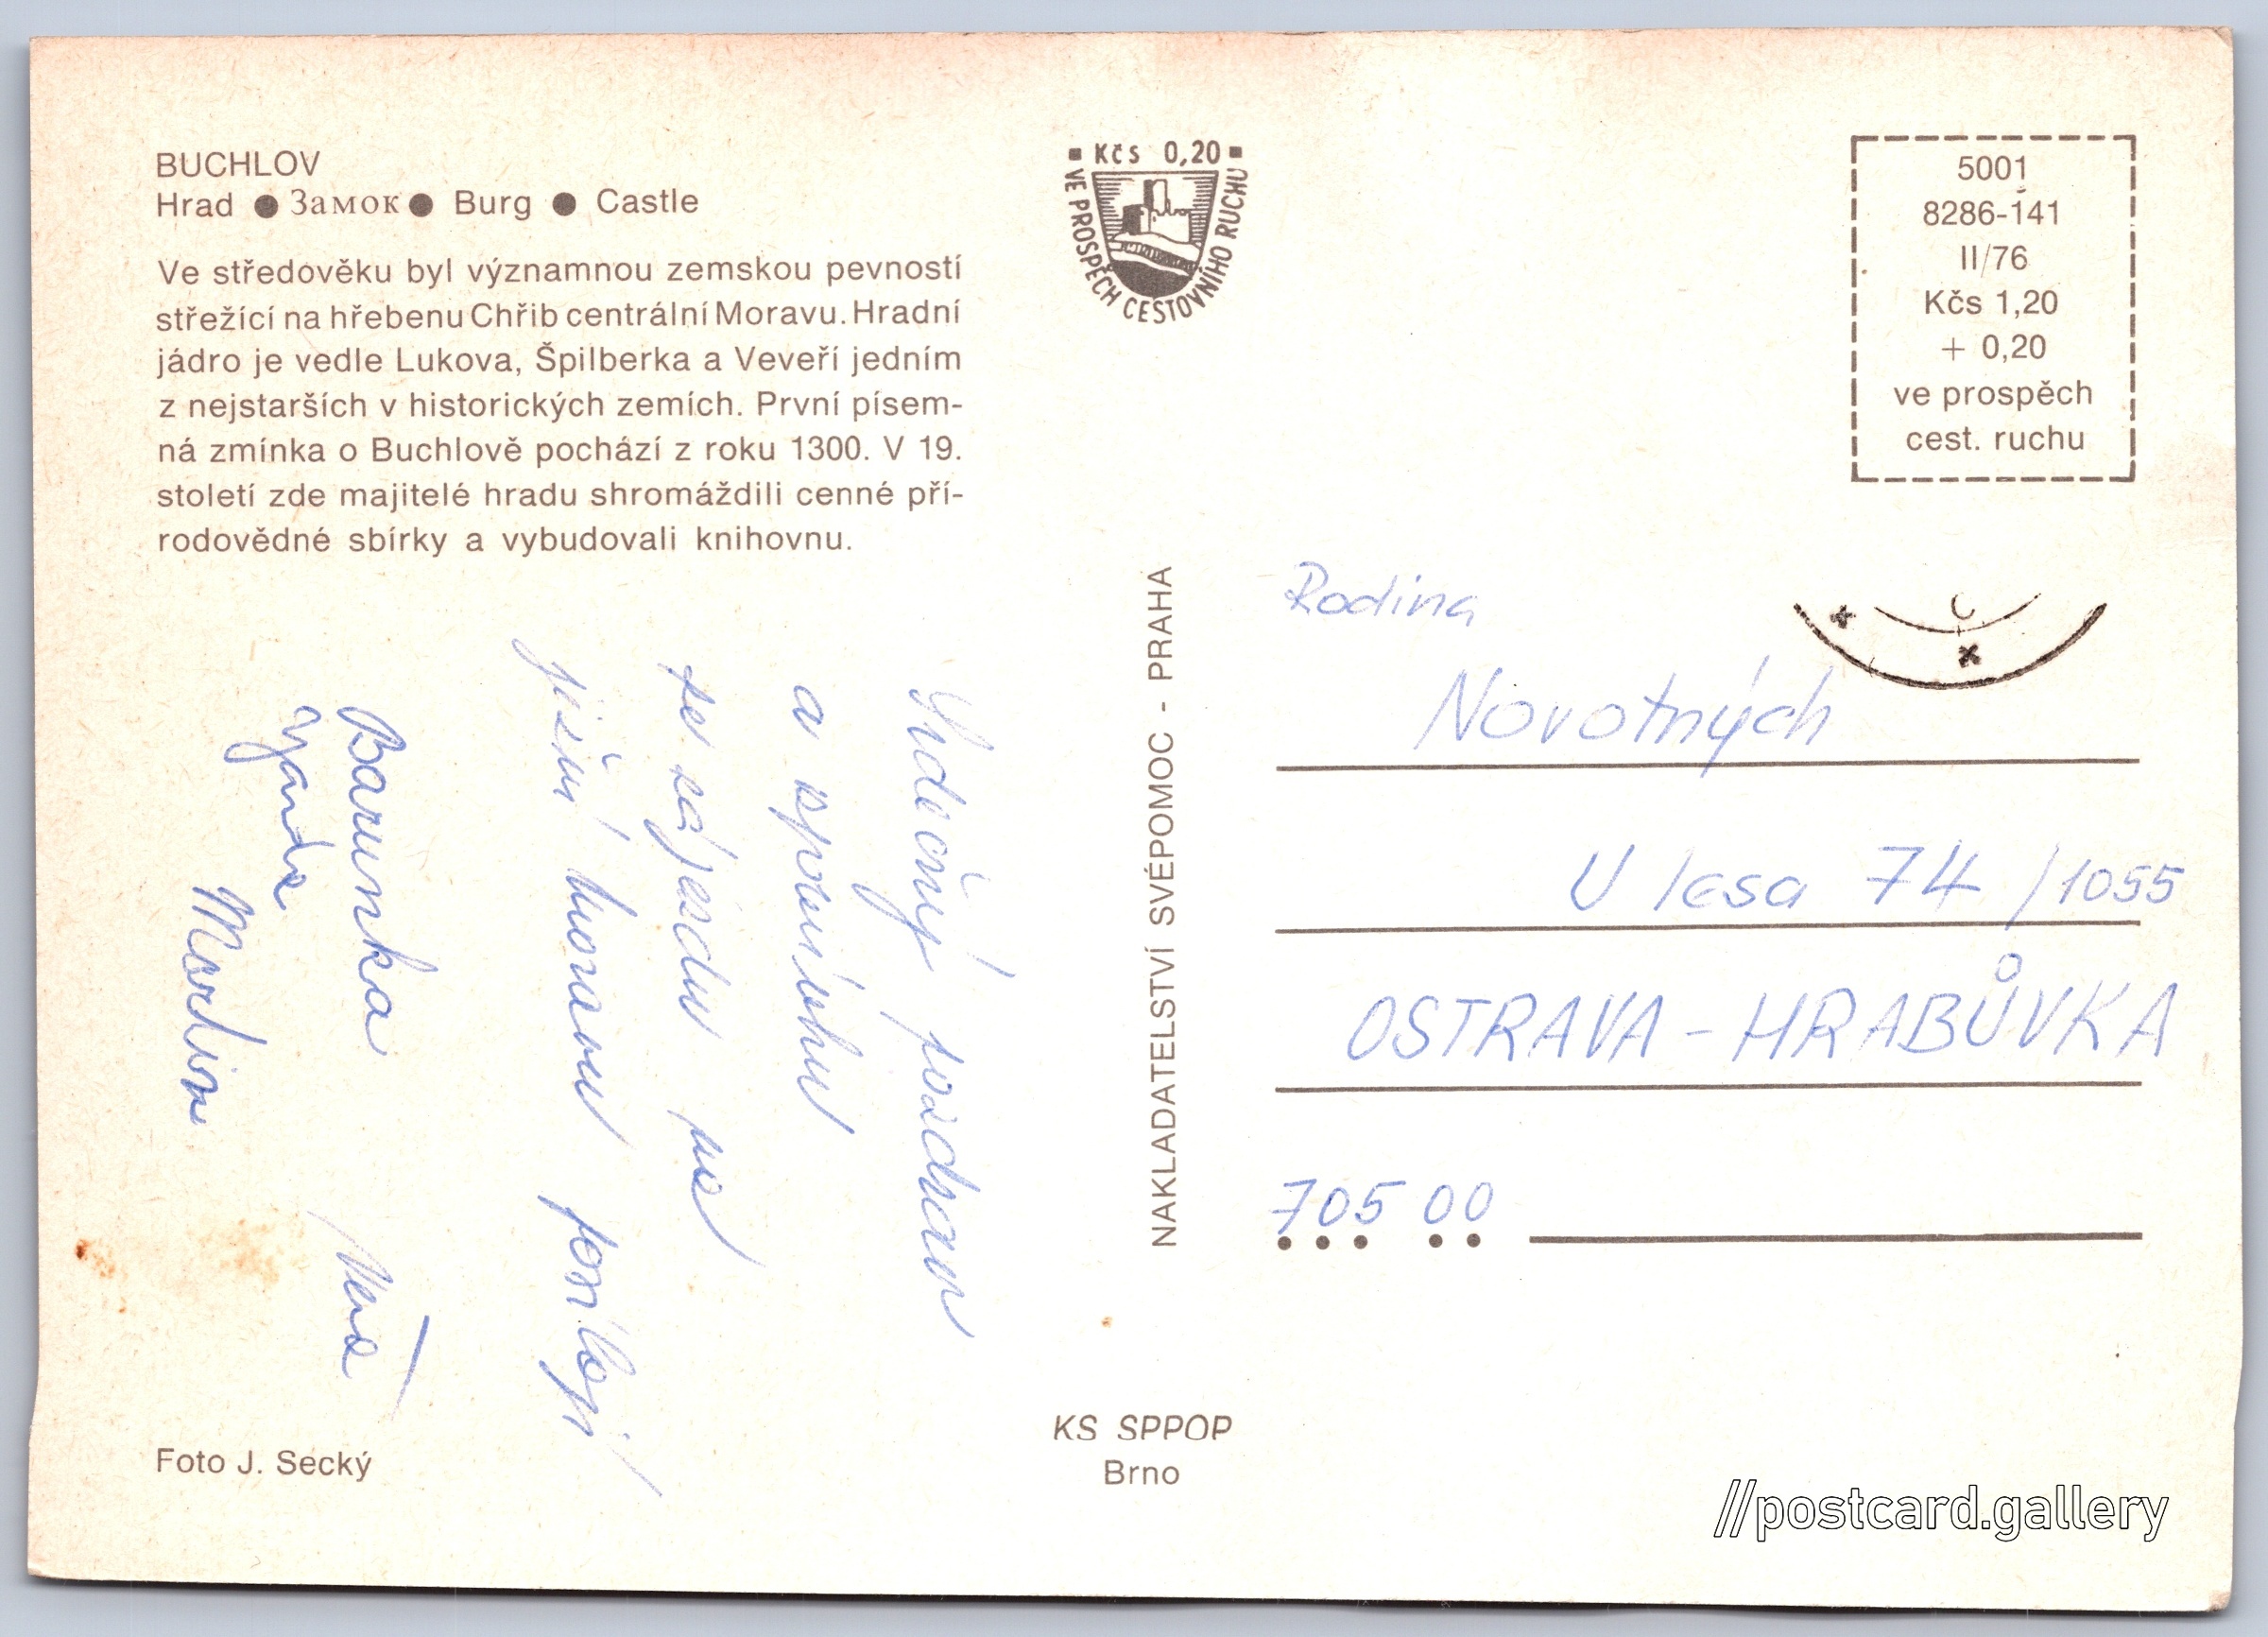 BUCHLOV
Hrad ● Замок ● Burg ● Castle
Ve středověku byl významnou zemskou pevností
střežící na hřebenu Chřib centrální Moravu. Hradní
jádro je vedle Lukova, Špilberka a Veveří jedním
z nejstarších v historických zemích. První písem-
ná zmínka o Buchlově pochází z roku 1300. V 19.
století zde majitelé hradu shromáždili cenné pří-
rodovědné sbírky a vybudovali knihovnu.
Srdečný pozdrav
a vzpomínku
ze zájezdu na
jižní Moravu posílají
Barunka
Vanda
Martin
Foto J. Secký
Kčs 0,20
VE PROSPĚCH CESTOVNÍHO RUCHU
NAKLADATELSTVÍ SVÉPOMOC - PRAHA
KS SPPOP
Brno
5001
8286-141
II/76
Kčs 1,20
+ 0,20
ve prospěch
cest. ruchu
Rodina
Novotných
U lesa 74 /1055
OSTRAVA - HRABŮVKA
705 00
//postcard.gallery